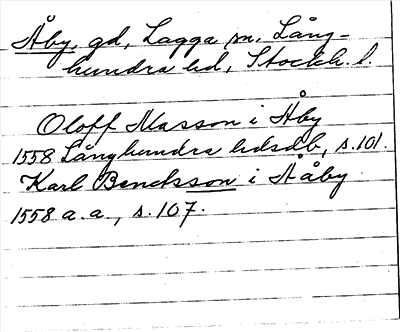 Åby, gd, Lagga sn, Lång-
hundra hd, Stockh. l.
Oloff Masson i Åby
1558 Långhundra hdsdb, s. 101.
Karl Bencksson i Ååby
1558 a.a., s. 107.